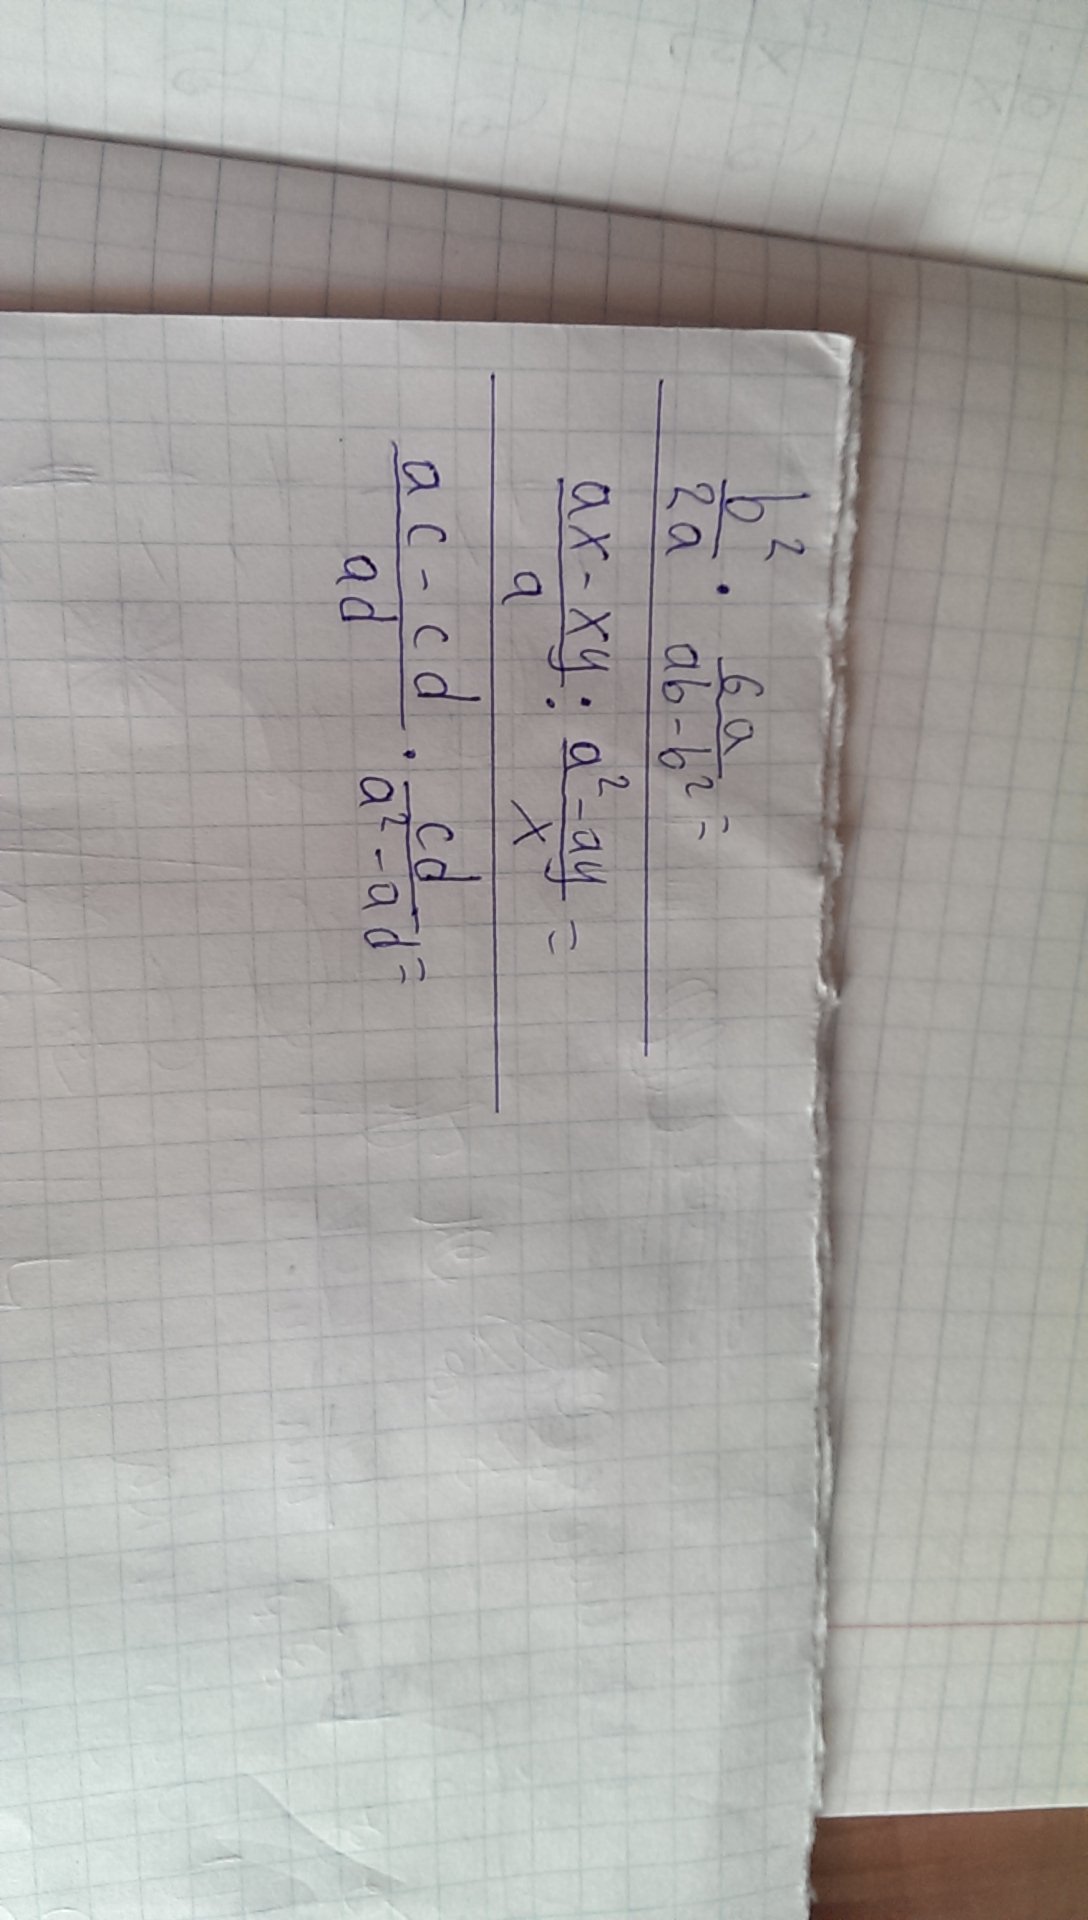 b²/2a · 6a/ab-b² =
ax-xy/a : a²-ay/x =
ac-cd/ad · cd/a²-ad =